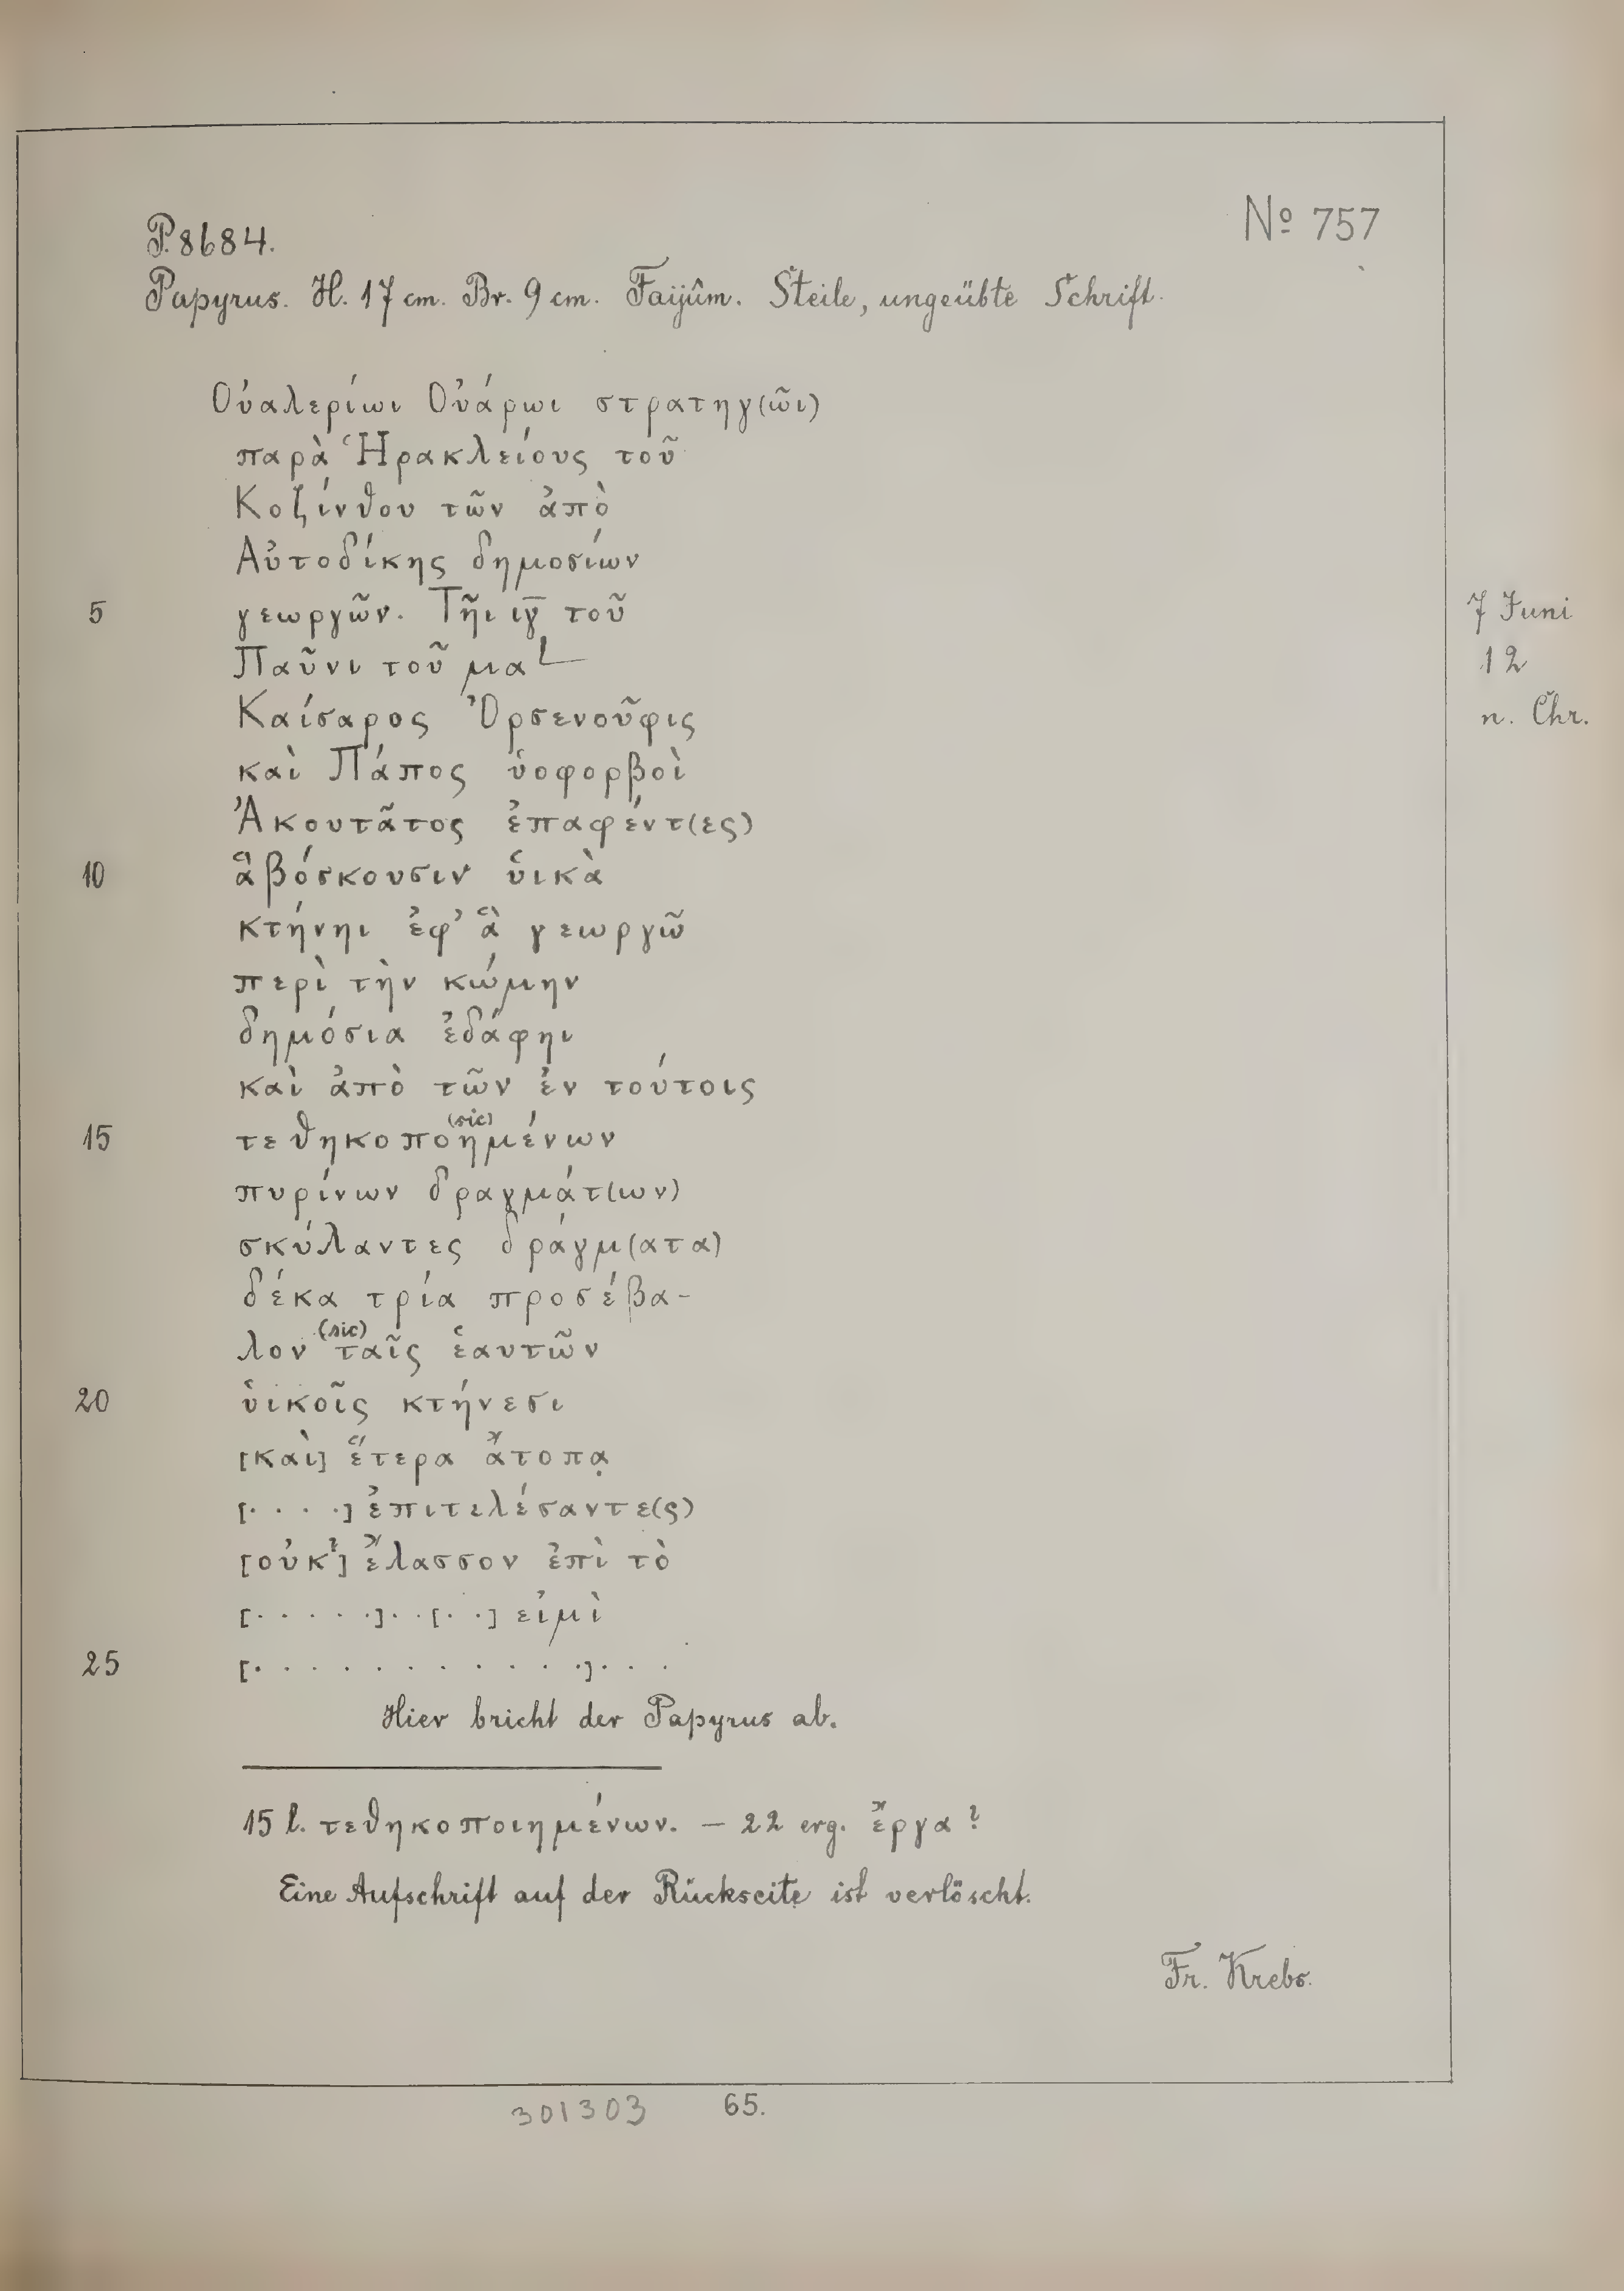 P. 8684.
Nº 757
Papyrus. H. 17 cm. Br. 9 cm. Faijûm. Steile, ungeübte Schrift.
Οὐαλερίωι Οὐάρωι στρατηγ(ῶι)
παρὰ Ἡρακλείους τοῦ
Κοζίνθου τῶν ἀπὸ
Αὐτοδίκης δημοσίων
5 γεωργῶν. Τῆι ιγ̅ τοῦ 7 Juni
Παῦνι τοῦ μα L 12
Καίσαρος Ὀρσενοῦφις n. Chr.
καὶ Πάπος ὑοφορβοὶ
Ἀκουτᾶτος ἐπαφέντ(ες)
10 ἃ βόσκουσιν ὑικὰ
κτήνηι ἐφ' ἃ γεωργῶ
περὶ τὴν κώμην
δημόσια ἐδάφηι
καὶ ἀπὸ τῶν ἐν τούτοις
(sic)
15 τεθηκοποημένων
πυρίνων δραγμάτ(ων)
σκύλαντες δράγμ(ατα)
δέκα τρία προσέβα-
(sic)
λον ταῖς ἑαυτῶν
20 ὑικοῖς κτήνεσι
[καὶ] ἕτερα ἄτοπα̣
[· · · ·] ἐπιτελέσαντε(ς)
[οὐκ?] ἔλασσον ἐπὶ τὸ
[· · · · ·] · · [· ·] εἰμὶ
25 [· · · · · · · · · · · ·] · · ·
Hier bricht der Papyrus ab.
15 l. τεθηκοποιημένων. — 22 erg. ἔργα?
Eine Aufschrift auf der Rückseite ist verlöscht.
Fr. Krebs.
301303 65.